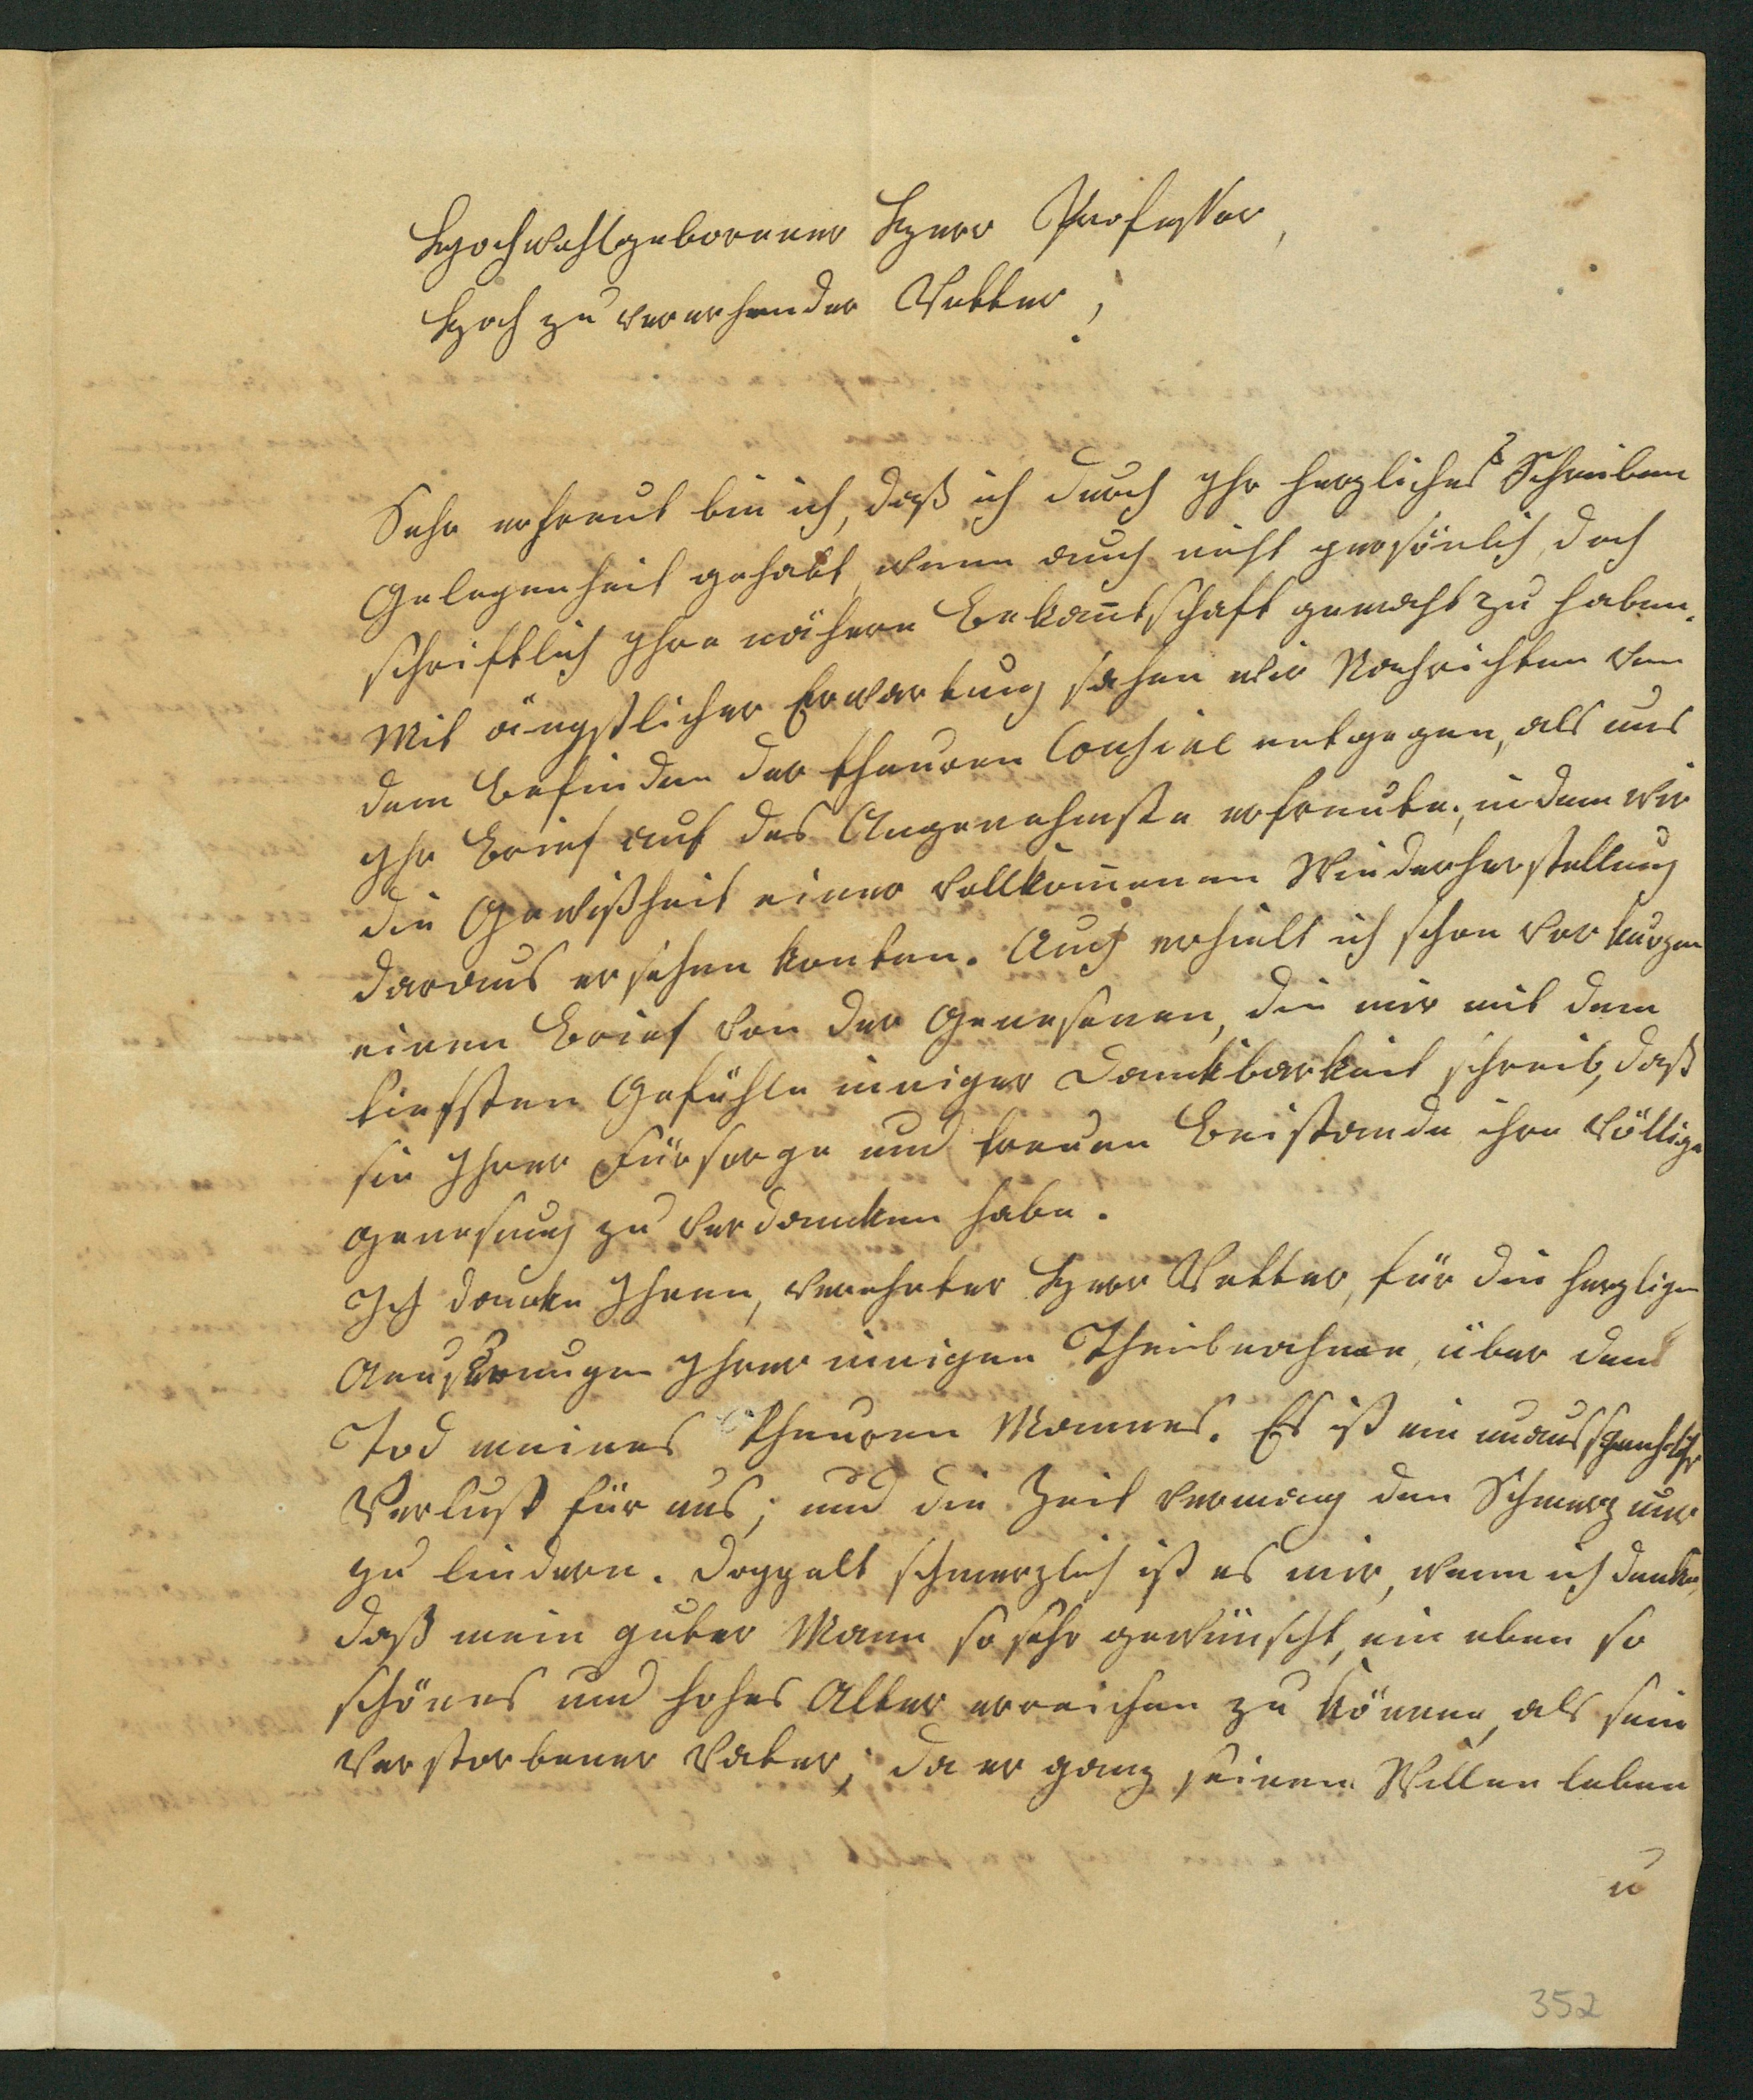 Hochwohlgeborener Herr Professor,
Hoch zu verehrender Vetter,
Sehr erfreut bin ich, daß ich durch Ihr herzliches Schreiben
Gelegenheit gehabt, wenn auch nicht persönlich, doch
schriftlich Ihre nähere Bekan̄tschaft gemacht zu haben.
Mit ängstlicher Erwartung sahen wir Nachrichten von
dem Befinden der theuren Cousine entgegen, als uns
Ihr Brief auf das Angenehmste erfreute; indem wir
die Gewißheit einer vollkom̄enen Wiederherstellung
daraus ersehen konten. Auch erhielt ich schon vor kurzem
einen Brief von der Genesenen, die mir mit dem
tiefsten Gefühle inniger Dankbarkeit schreib, daß
sie Ihrer Fürsorge und treuen Beistande ihre völlige
Genesung zu verdancken habe.
Ich dancke Ihnen, verehrter Herr Vetter, für die herzligen
Aeußerungen Ihrer innigen Theilnahme, über den
Tod meines theuren Mannes. Es ist ein
Verlust für uns; und die Zeit vermag den Schmerz nur
zu lindern. Doppelt schmerzlich ist es mir, wenn ich dencke,
daß mein guter Mann so sehr gewünscht, ein eben so
schönes und hohes Alter erreichen zu können, als sein
verstorbener Vater; da er ganz seinem Willen leben
u
352